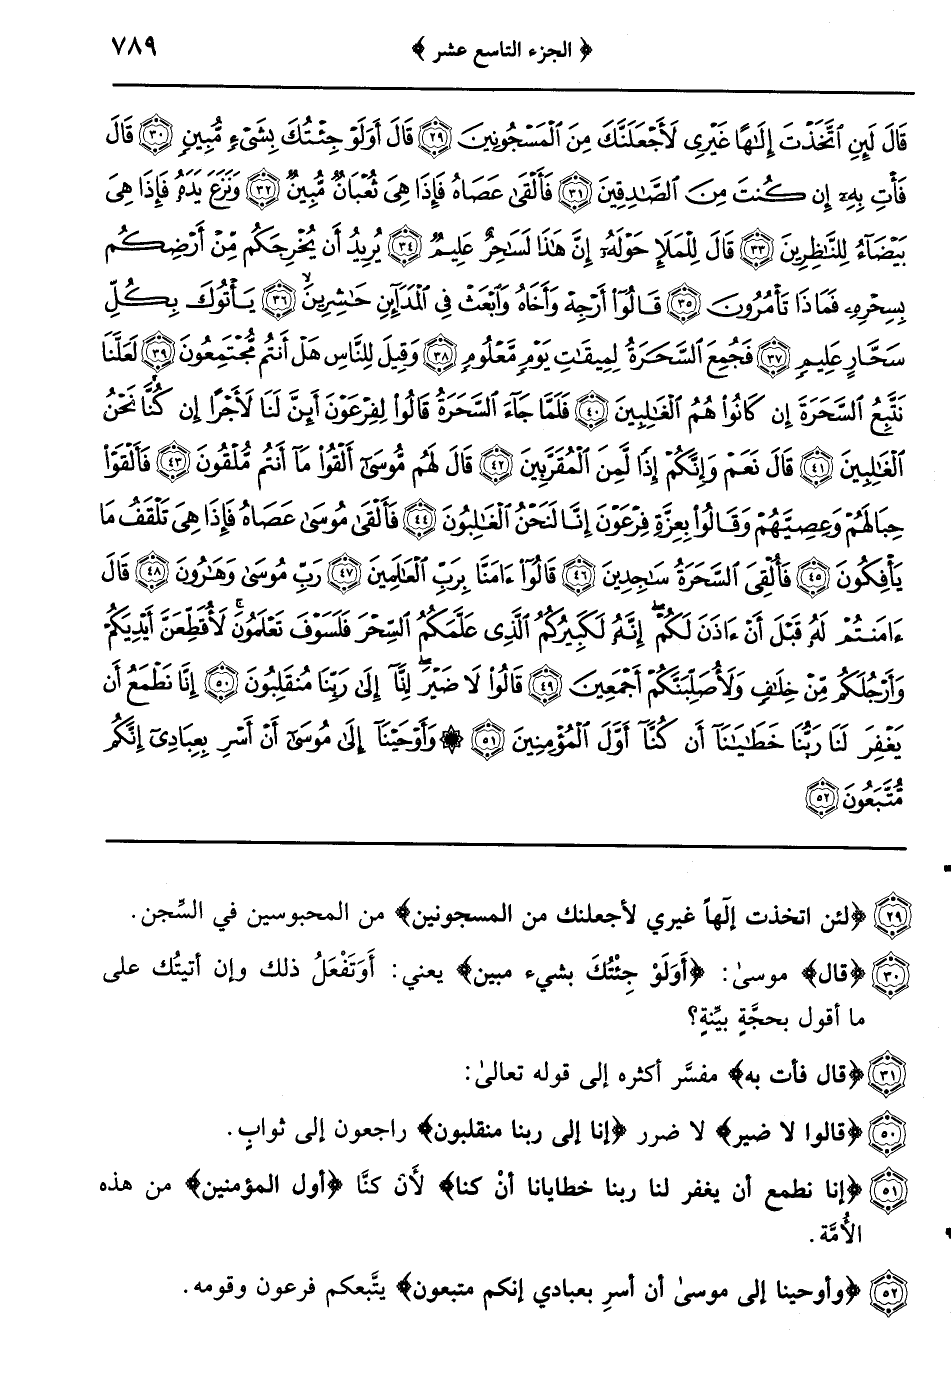 ﴿ الجزء التاسع عشر ﴾ ٧٨٩
قَالَ لَئِنِ ٱتَّخَذْتَ إِلَٰهًا غَيْرِى لَأَجْعَلَنَّكَ مِنَ ٱلْمَسْجُونِينَ ٢٩ قَالَ أَوَلَوْ جِئْتُكَ بِشَىْءٍ مُّبِينٍ ٣٠ قَالَ
فَأْتِ بِهِۦٓ إِن كُنتَ مِنَ ٱلصَّٰدِقِينَ ٣١ فَأَلْقَىٰ عَصَاهُ فَإِذَا هِىَ ثُعْبَانٌ مُّبِينٌ ٣٢ وَنَزَعَ يَدَهُۥ فَإِذَا هِىَ
بَيْضَآءُ لِلنَّٰظِرِينَ ٣٣ قَالَ لِلْمَلَإِ حَوْلَهُۥٓ إِنَّ هَٰذَا لَسَٰحِرٌ عَلِيمٌ ٣٤ يُرِيدُ أَن يُخْرِجَكُم مِّنْ أَرْضِكُم
بِسِحْرِهِۦ فَمَاذَا تَأْمُرُونَ ٣٥ قَالُوٓا۟ أَرْجِهْ وَأَخَاهُ وَٱبْعَثْ فِى ٱلْمَدَآئِنِ حَٰشِرِينَ ٣٦ يَأْتُوكَ بِكُلِّ
سَحَّارٍ عَلِيمٍ ٣٧ فَجُمِعَ ٱلسَّحَرَةُ لِمِيقَٰتِ يَوْمٍ مَّعْلُومٍ ٣٨ وَقِيلَ لِلنَّاسِ هَلْ أَنتُم مُّجْتَمِعُونَ ٣٩ لَعَلَّنَا
نَتَّبِعُ ٱلسَّحَرَةَ إِن كَانُوا۟ هُمُ ٱلْغَٰلِبِينَ ٤٠ فَلَمَّا جَآءَ ٱلسَّحَرَةُ قَالُوا۟ لِفِرْعَوْنَ أَئِنَّ لَنَا لَأَجْرًا إِن كُنَّا نَحْنُ
ٱلْغَٰلِبِينَ ٤١ قَالَ نَعَمْ وَإِنَّكُمْ إِذًا لَّمِنَ ٱلْمُقَرَّبِينَ ٤٢ قَالَ لَهُم مُّوسَىٰٓ أَلْقُوا۟ مَآ أَنتُم مُّلْقُونَ ٤٣ فَأَلْقَوْا۟
حِبَالَهُمْ وَعِصِيَّهُمْ وَقَالُوا۟ بِعِزَّةِ فِرْعَوْنَ إِنَّا لَنَحْنُ ٱلْغَٰلِبُونَ ٤٤ فَأَلْقَىٰ مُوسَىٰ عَصَاهُ فَإِذَا هِىَ تَلْقَفُ مَا
يَأْفِكُونَ ٤٥ فَأُلْقِىَ ٱلسَّحَرَةُ سَٰجِدِينَ ٤٦ قَالُوٓا۟ ءَامَنَّا بِرَبِّ ٱلْعَٰلَمِينَ ٤٧ رَبِّ مُوسَىٰ وَهَٰرُونَ ٤٨ قَالَ
ءَامَنتُمْ لَهُۥ قَبْلَ أَنْ ءَاذَنَ لَكُمْ ۖ إِنَّهُۥ لَكَبِيرُكُمُ ٱلَّذِى عَلَّمَكُمُ ٱلسِّحْرَ فَلَسَوْفَ تَعْلَمُونَ ۚ لَأُقَطِّعَنَّ أَيْدِيَكُمْ
وَأَرْجُلَكُم مِّنْ خِلَٰفٍ وَلَأُصَلِّبَنَّكُمْ أَجْمَعِينَ ٤٩ قَالُوا۟ لَا ضَيْرَ ۖ إِنَّآ إِلَىٰ رَبِّنَا مُنقَلِبُونَ ٥٠ إِنَّا نَطْمَعُ أَن
يَغْفِرَ لَنَا رَبُّنَا خَطَٰيَٰنَآ أَن كُنَّآ أَوَّلَ ٱلْمُؤْمِنِينَ ٥١ ۞ وَأَوْحَيْنَآ إِلَىٰ مُوسَىٰٓ أَنْ أَسْرِ بِعِبَادِىٓ إِنَّكُم
مُّتَّبَعُونَ ٥٢
٢٩ ﴿لئن اتخذت إلٰهاً غيري لأجعلنك من المسجونين﴾ من المحبوسين في السِّجن.
٣٠ ﴿قال﴾ موسىٰ: ﴿أَوَلَوْ جِئْتُكَ بشيء مبين﴾ يعني: أَوَتَفْعَلُ ذلك وإن أتيتُك على
ما أقول بحجَّةٍ بيِّنةٍ؟
٣١ ﴿قال فأت به﴾ مفسَّر أكثره إلى قوله تعالىٰ:
٥٠ ﴿قالوا لا ضير﴾ لا ضرر ﴿إنا إلى ربنا منقلبون﴾ راجعون إلى ثوابٍ.
٥١ ﴿إنا نطمع أن يغفر لنا ربنا خطايانا أنْ كنا﴾ لأَنْ كنَّا ﴿أول المؤمنين﴾ من هذه
الأُمَّة.
٥٢ ﴿وأوحينا إلى موسىٰ أن أسرِ بعبادي إنكم متبعون﴾ يتَّبعكم فرعون وقومه.